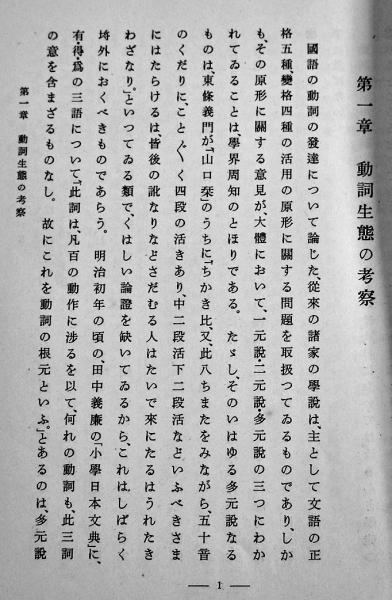 第一章　動詞生態の考察
國語の動詞の發達について論じた、從來の諸家の學説は、主として文語の正
格五種變格四種の活用の原形に關する問題を取扱つてゐるものであり、しか
も、その原形に關する意見が、大體において、一元説・二元説・多元説の三つにわか
れてゐることは、學界周知のとほりである。　たゞし、そのいはゆる多元説なる
ものは、東條義門が、「山口栞」のうちに、「ちかき比、又、此八ちまたをみながら、五十音
のくだりに、こと〴〵く四段の活きあり、中二段活下二段活などいふべきさま
にはたらけるは、皆後の訛なりなどさだむる人はたいで來にたるはうれたき
わざなり。」といつてゐる類で、くはしい論證を缺いてゐるから、これはしばらく
埒外におくべきものであらう。　明治初年の頃の、田中義廉の「小學日本文典」に、
有・得・爲の三語について、「此詞は、凡百の動作に渉るを以て、何れの動詞も、此三詞
の意を含まざるものなし。　故にこれを動詞の根元といふ。」とあるのは、多元説
第一章　動詞生態の考察
— 1 —